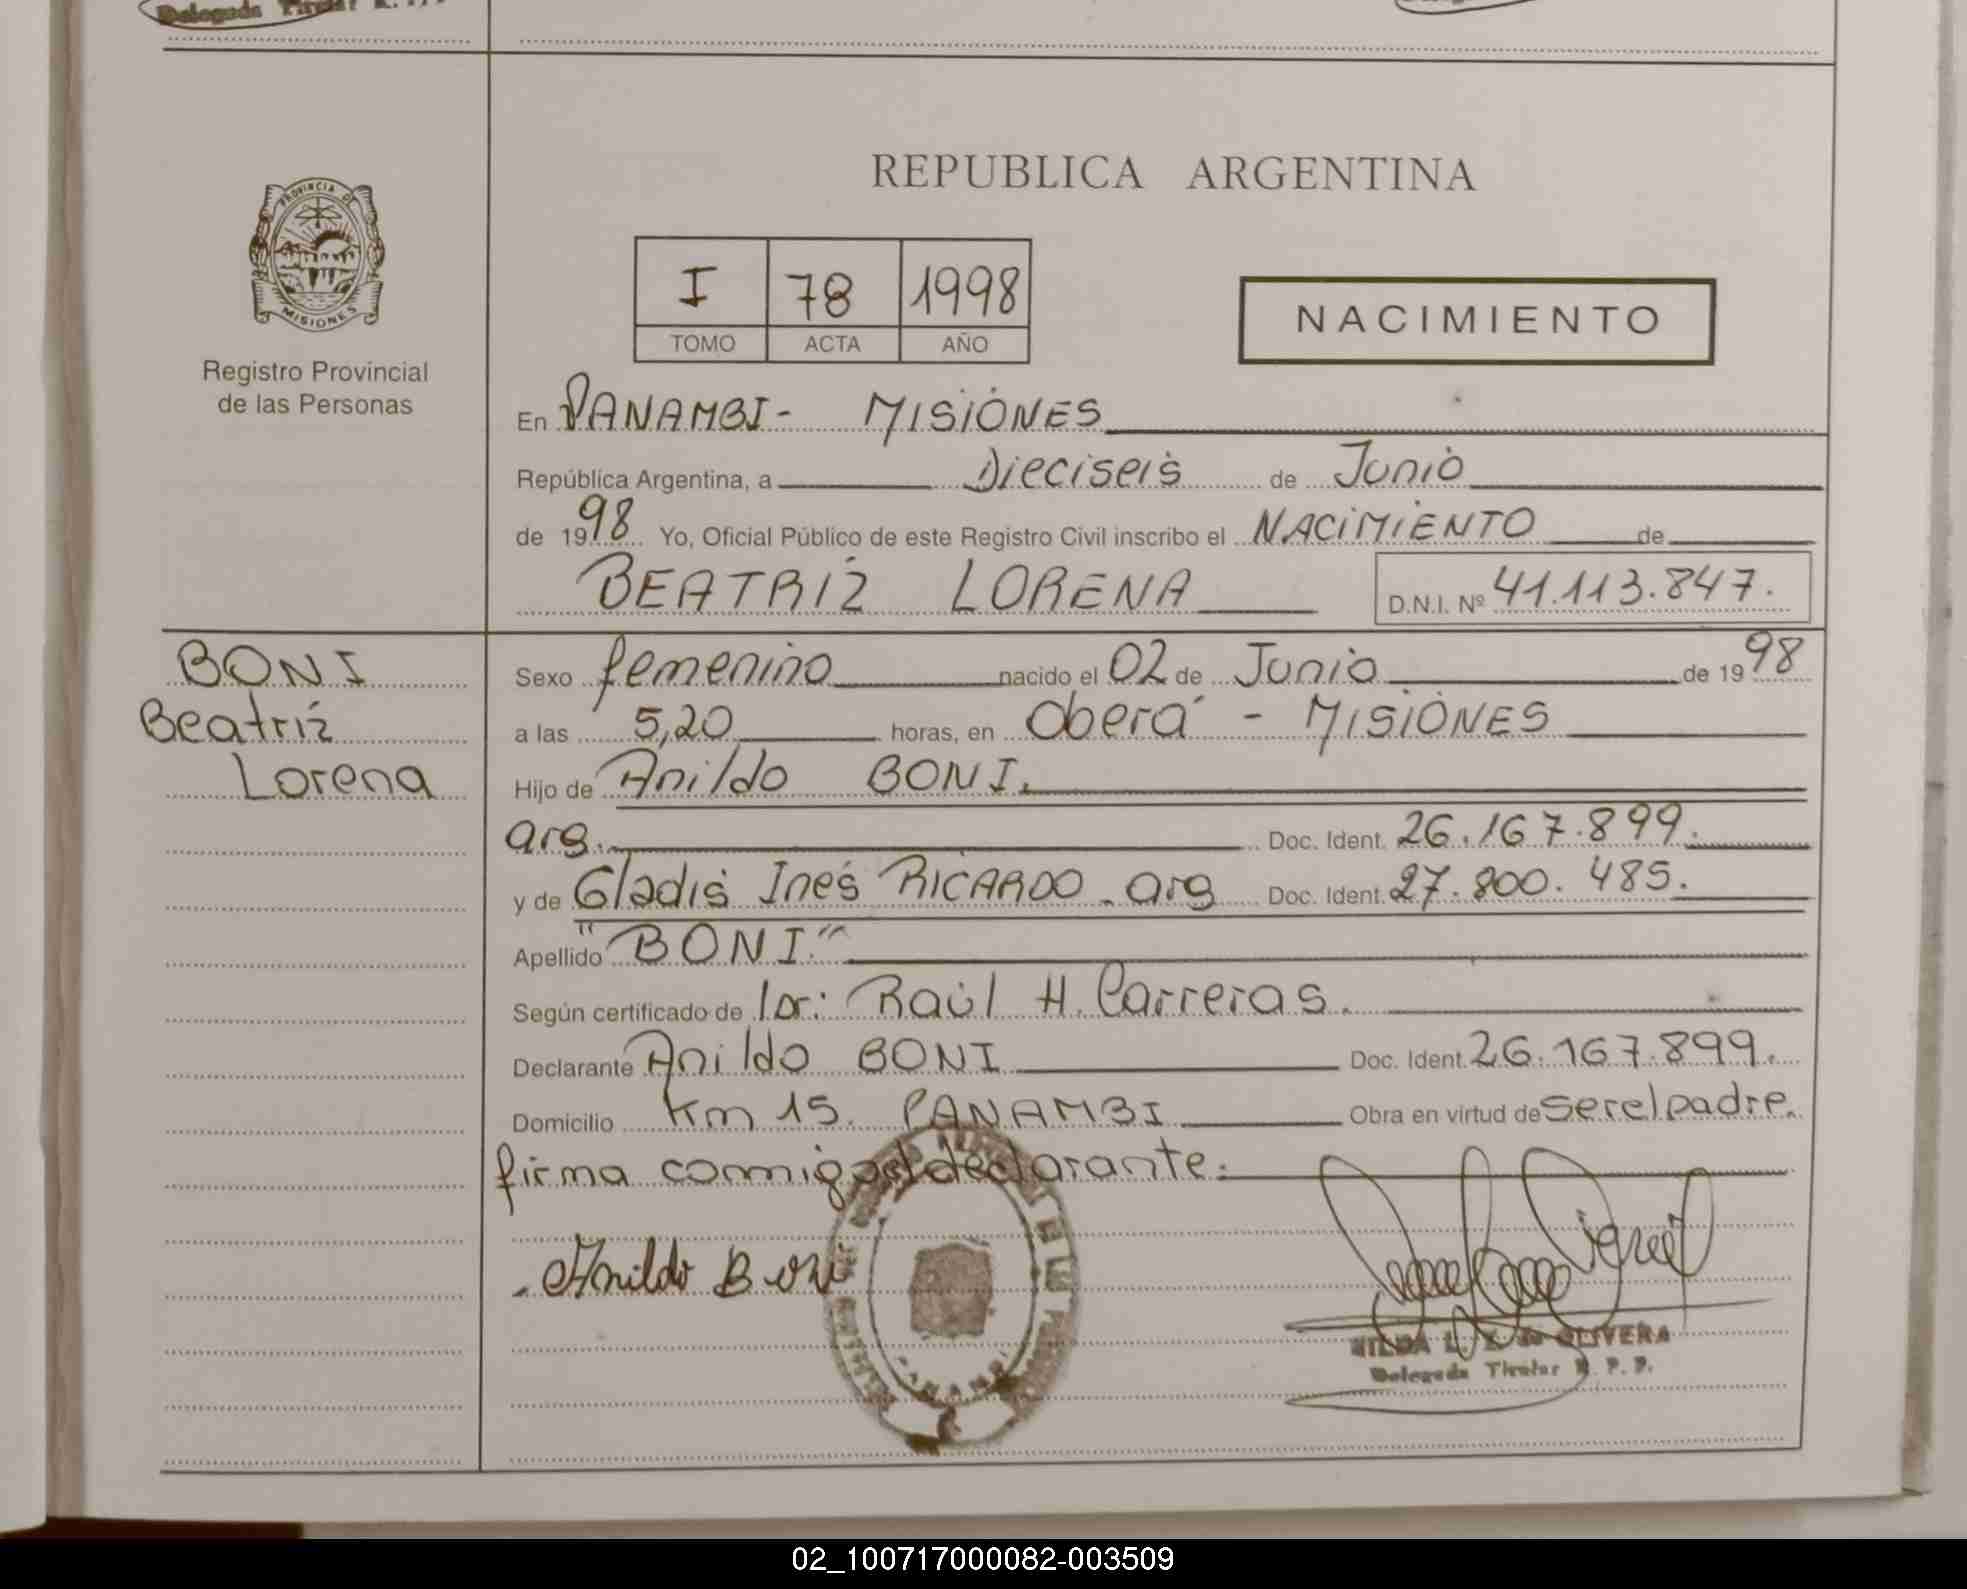 Delegada Titular R. P. P.
PROVINCIA DE
MISIONES
Registro Provincial
de las Personas
REPUBLICA ARGENTINA
I 78 1998
TOMO ACTA AÑO
NACIMIENTO
En PANAMBI - MISIONES
República Argentina, a Dieciseis de Junio
de 1998 Yo, Oficial Público de este Registro Civil inscribo el NACIMIENTO de
BEATRIZ LORENA D.N.I. Nº 41.113.847.
BONI
Beatriz
Lorena
Sexo femenino nacido el 02 de Junio de 1998
a las 5,20 horas, en Oberá - MISIONES
Hijo de Anildo BONI.
arg. Doc. Ident. 26.167.899.
y de Gladis Inés RICARDO - arg Doc. Ident. 27.800.485.
Apellido "BONI."
Según certificado de Raúl H. Carreras.
Declarante Anildo BONI Doc. Ident. 26.167.899.
Domicilio Km 15. PANAMBI Obra en virtud de ser el padre.
firma conmigo el declarante.
Anildo Boni
HILDA L. de OLIVERA
Delegada Titular R. P. P.
PANAMBI
02_100717000082-003509